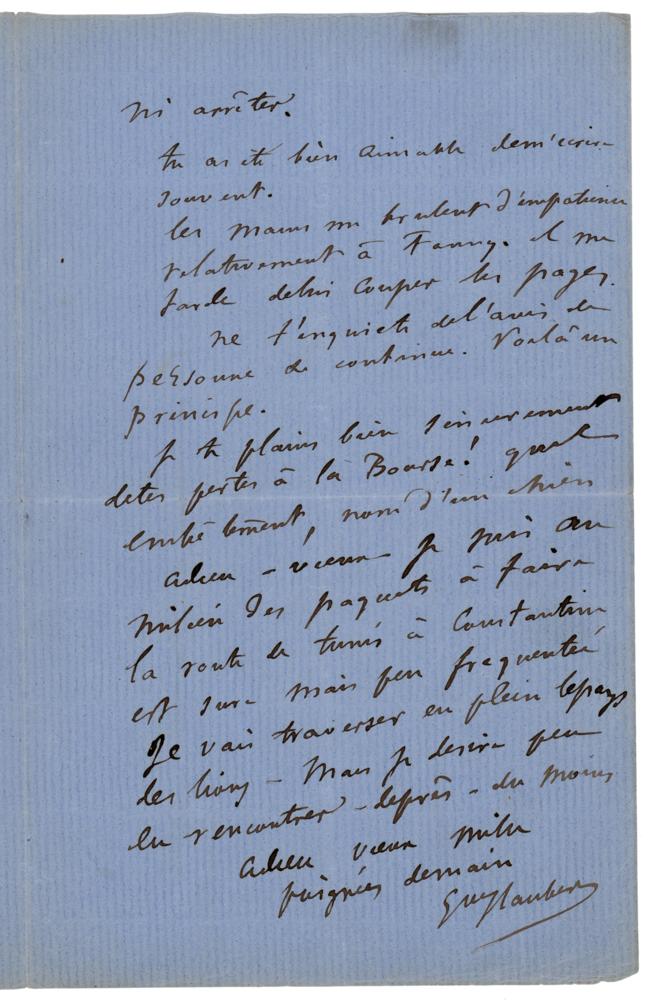 ni arrêter.
tu as été bien aimable de m'écrire
souvent.
les mains me brulent d'impatience
relativement à Fanny. il me
tarde de lui couper les pages.
ne t'inquiete de l'avis de
personne & continue. Voilà un
principe.
je te plains bien sincerement
de tes pertes à la Bourse! quel
embêtement, nom d'un chien
adieu - vieux je suis au
milieu des paquets à faire
la route de tunis à Constantine
est sure mais peu frequentée
Je vais traverser en plein le pays
des lions - Mais je desire peu
en rencontrer - de près - du moins
adieu vieux mille
poignées de main
Gve Flaubert